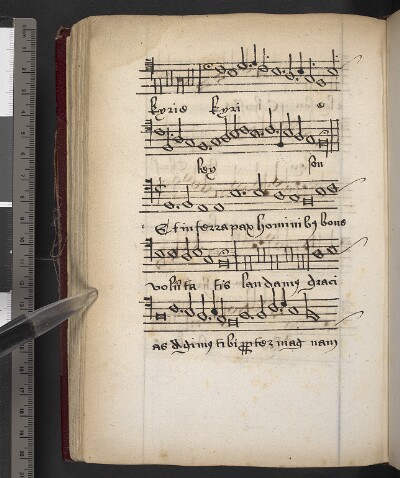 kyrie kyri e
ley son
Et in terra pax hominibꝫ bone
volūta tis laudamꝰ graci
as agimꝰ tibi ꝓpter mag nam